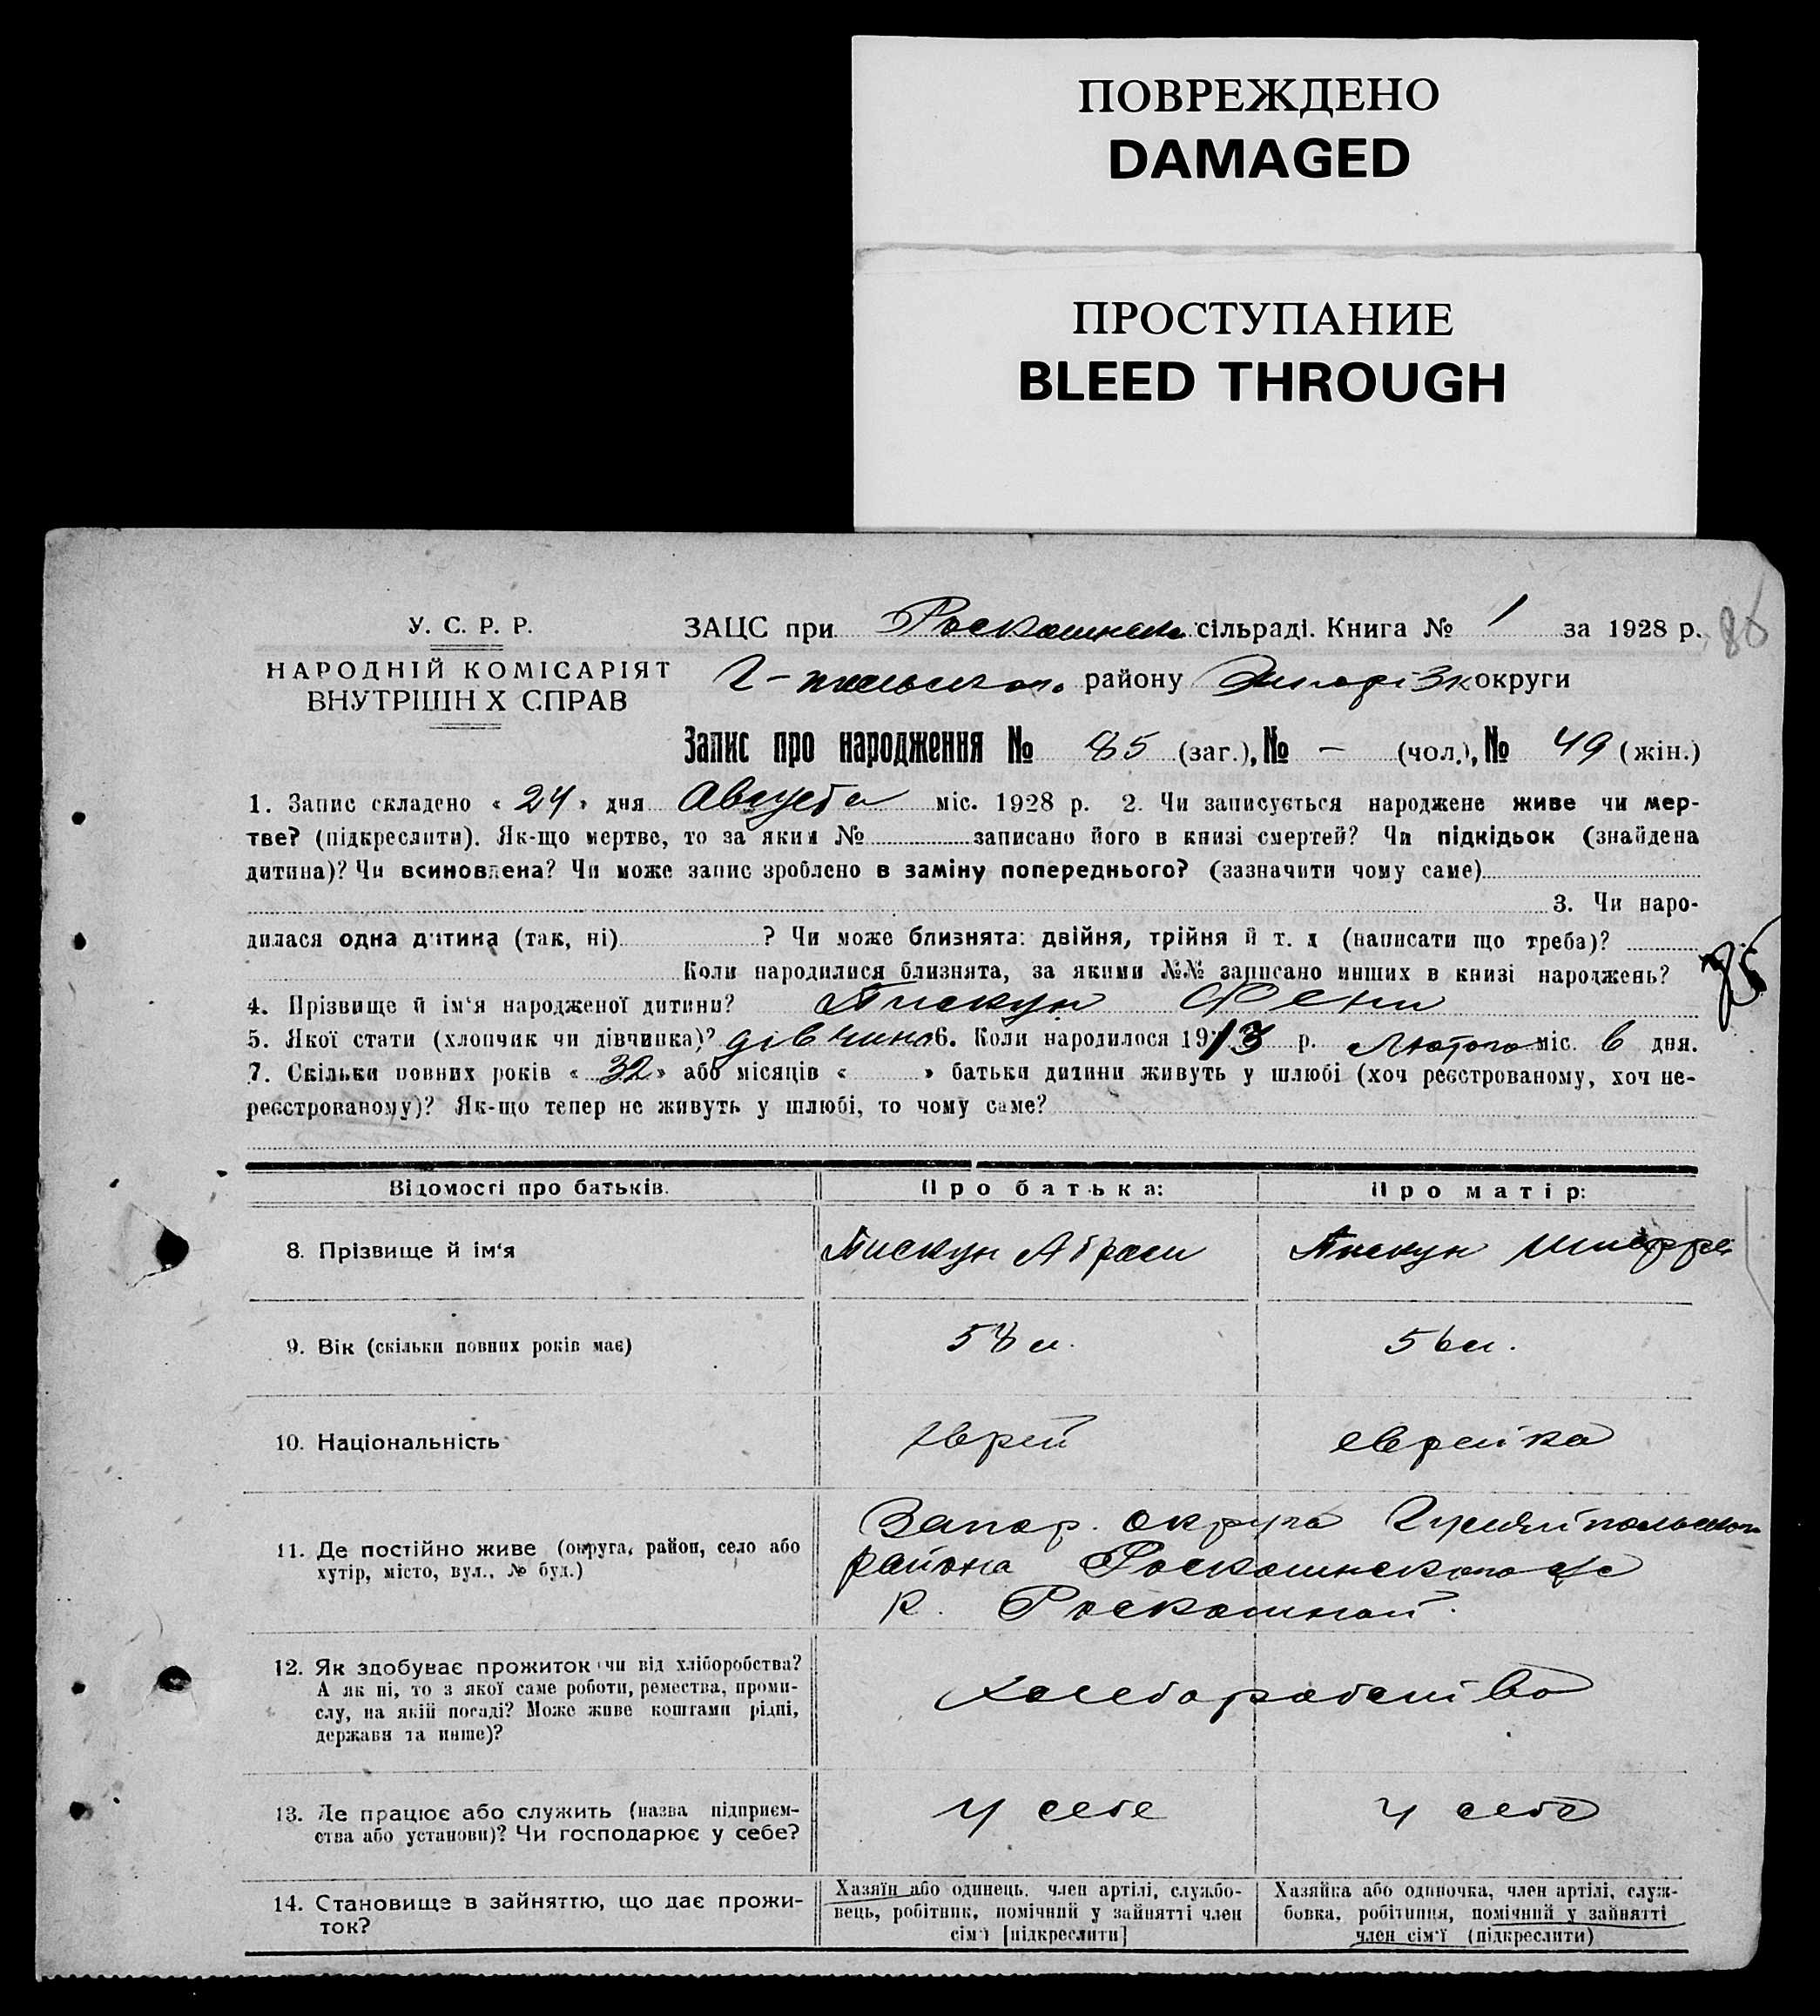 ПОВРЕЖДЕНО
DAMAGED
ПРОСТУПАНИЕ
BLEED THROUGH
У. С. Р. Р.
НАРОДНІЙ КОМІСАРІЯТ
ВНУТРІШН Х СПРАВ
ЗАЦС при Роскошнск. сільраді. Книга № 1 за 1928 р. 86
Г-польского району округи
Запис про народження № 85 (заг.), № — (чол.), № 49 (жін.)
1. Запис складено « 24 » дня Августа міс. 1928 р. 2. Чи записується народжене живе чи мер-
тве? (підкреслити). Як-що мертве, то за яким № записано його в книзі смертей? Чи підкідьок (знайдена
дитина)? Чи всиновлена? Чи може запис зроблено в заміну попереднього? (зазначити чому саме)
3. Чи наро-
дилася одна дитина (так, ні) ? Чи може близнята: двійня, трійня й т. д (написати що треба)?
Коли народилися близнята, за якими №№ записано инших в книзі народжень? 85
4. Прізвище й ім‘я народженої дитини? Пискун Фени
5. Якої стати (хлопчик чи дівчинка)? дівчина 6. Коли народилося 1913 р. Лютого міс. 6 дня.
7. Скільки повних років « 32 » або місяців « » батьки дитини живуть у шлюбі (хоч реєстрованому, хоч не-
реєстрованому)? Як-що тепер не живуть у шлюбі, то чому саме?
Відомості про батьків. Про батька: Про матір:
8. Прізвище й ім‘я Пискун Абрам Пискун Шифра
9. Вік (скільки повних років має) 58 л. 56 л.
10. Національність Еврей еврейка
11. Де постійно живе (округа, район, село або
хутір, місто, вул., № буд.)
Запор. округа Гуляйпольского
района Роскошнского с/с
к. Роскошной.
12. Як здобуває прожиток чи від хліборобства?
А як ні, то з якої саме роботи, ремества, проми-
слу, на якій посаді? Може живе коштами рідні,
держави та инше)?
Хлеборобство
13. Де працює або служить (назва підприєм-
ства або установи)? Чи господарює у себе?
у себе у себе
14. Становище в зайняттю, що дає прожи-
ток?
Хазяїн або одинець, член артілі, службо-
вець, робітник, помічний у зайнятті член
сім‘ї [підкреслити]
Хазяйка або одиночка, член артілі, служ-
бовка, робітниця, помічний у зайнятті
член сім‘ї (підкреслити)